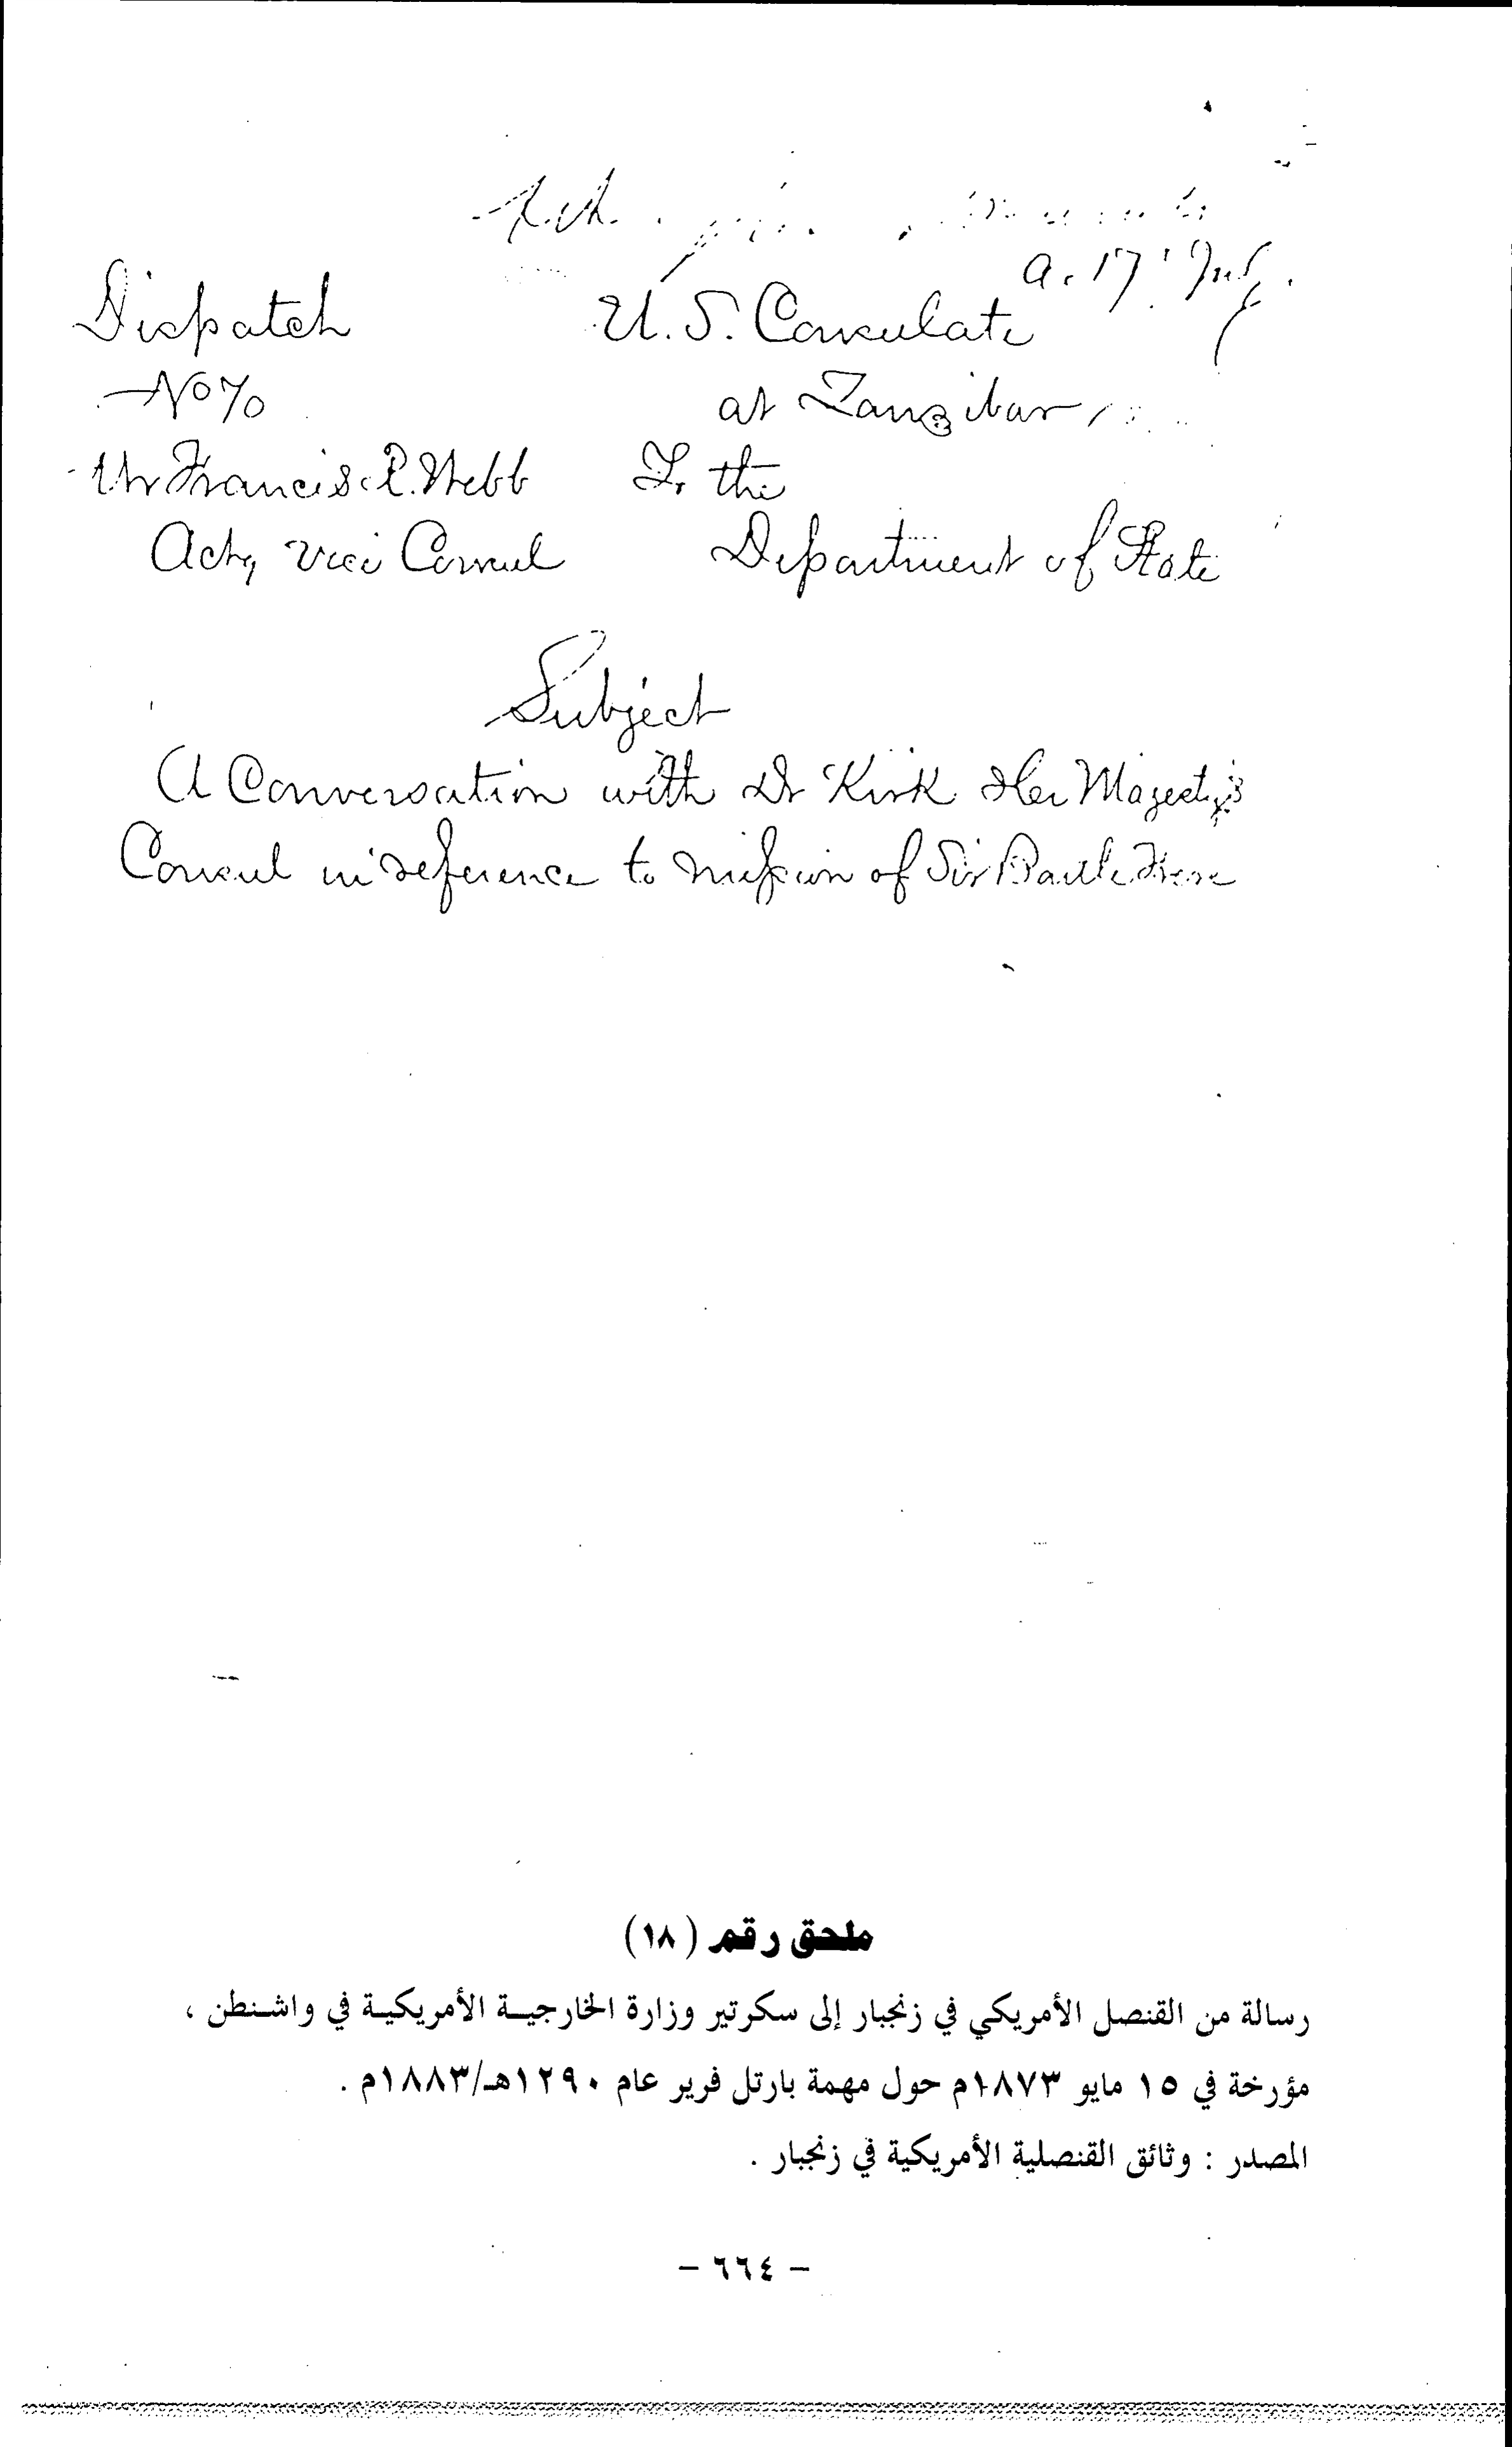 a. 17. July.
Dispatch U.S. Consulate
No 70 at Zanzibar
Mr Francis R. Webb To the
Actg Vice Consul Department of State
Subject
A Conversation with Dr Kirk Her Majesty's
Consul in reference to mission of Sir Bartle Frere
ملحق رقم (١٨)
رسالة من القنصل الأمريكي في زنجبار إلى سكرتير وزارة الخارجية الأمريكية في واشنطن ،
مؤرخة في ١٥ مايو ١٨٧٣م حول مهمة بارتل فرير عام ١٢٩٠هـ/١٨٨٣م .
المصدر : وثائق القنصلية الأمريكية في زنجبار .
– ٦٦٤ –